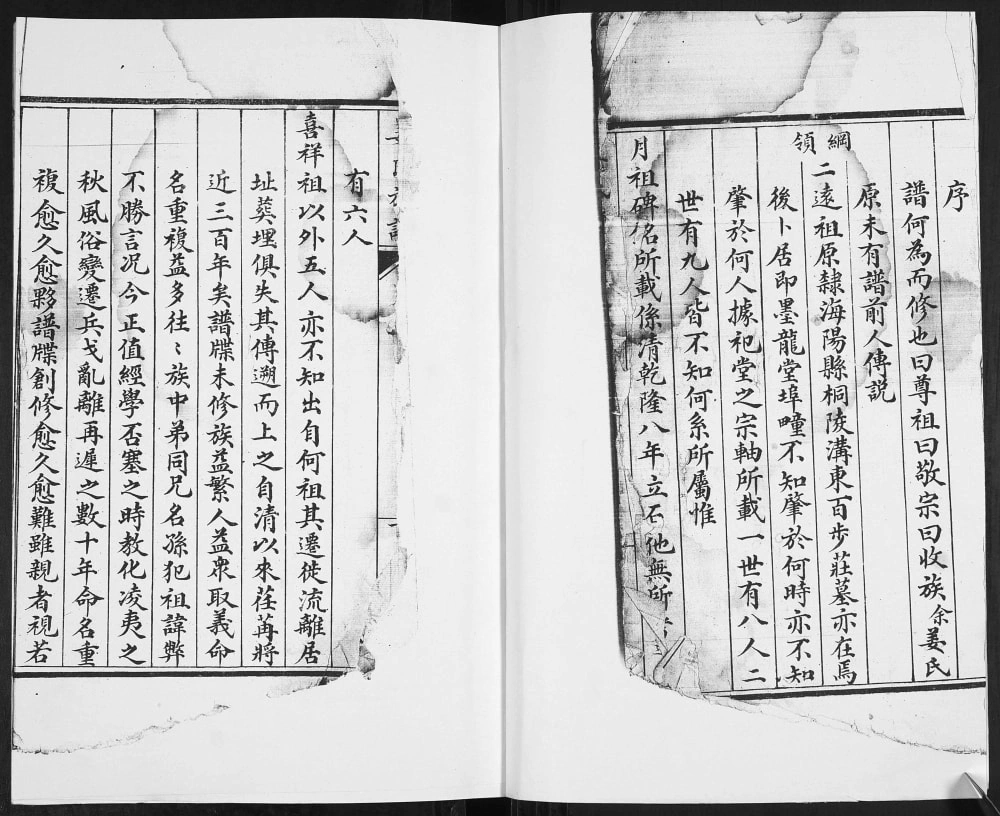 序
譜何為而修也曰尊祖曰敬宗曰收族余姜氏
原未有譜前人傳説
綱領
二遠祖原隸海陽縣桐陵溝東百步莊墓亦在焉
後卜居即墨龍堂埠疃不知肇於何時亦不知
肇於何人據祀堂之宗軸所載一世有八人二
世有九人皆不知何系所屬惟
月祖碑名所載係清乾隆八年立石他無所
有六人
喜祥祖以外五人亦不知出自何祖其遷徙流離居
址葬埋俱失其傳遡而上之自清以來荏苒將
近三百年矣譜牒未修族益繁人益衆取義命
名重複益多往〻族中弟同兄名孫犯祖諱弊
不勝言况今正值經學否塞之時教化凌夷之
秋風俗變遷兵戈亂離再遲之數十年命名重
複愈久愈夥譜牒創修愈久愈難雖親者視若